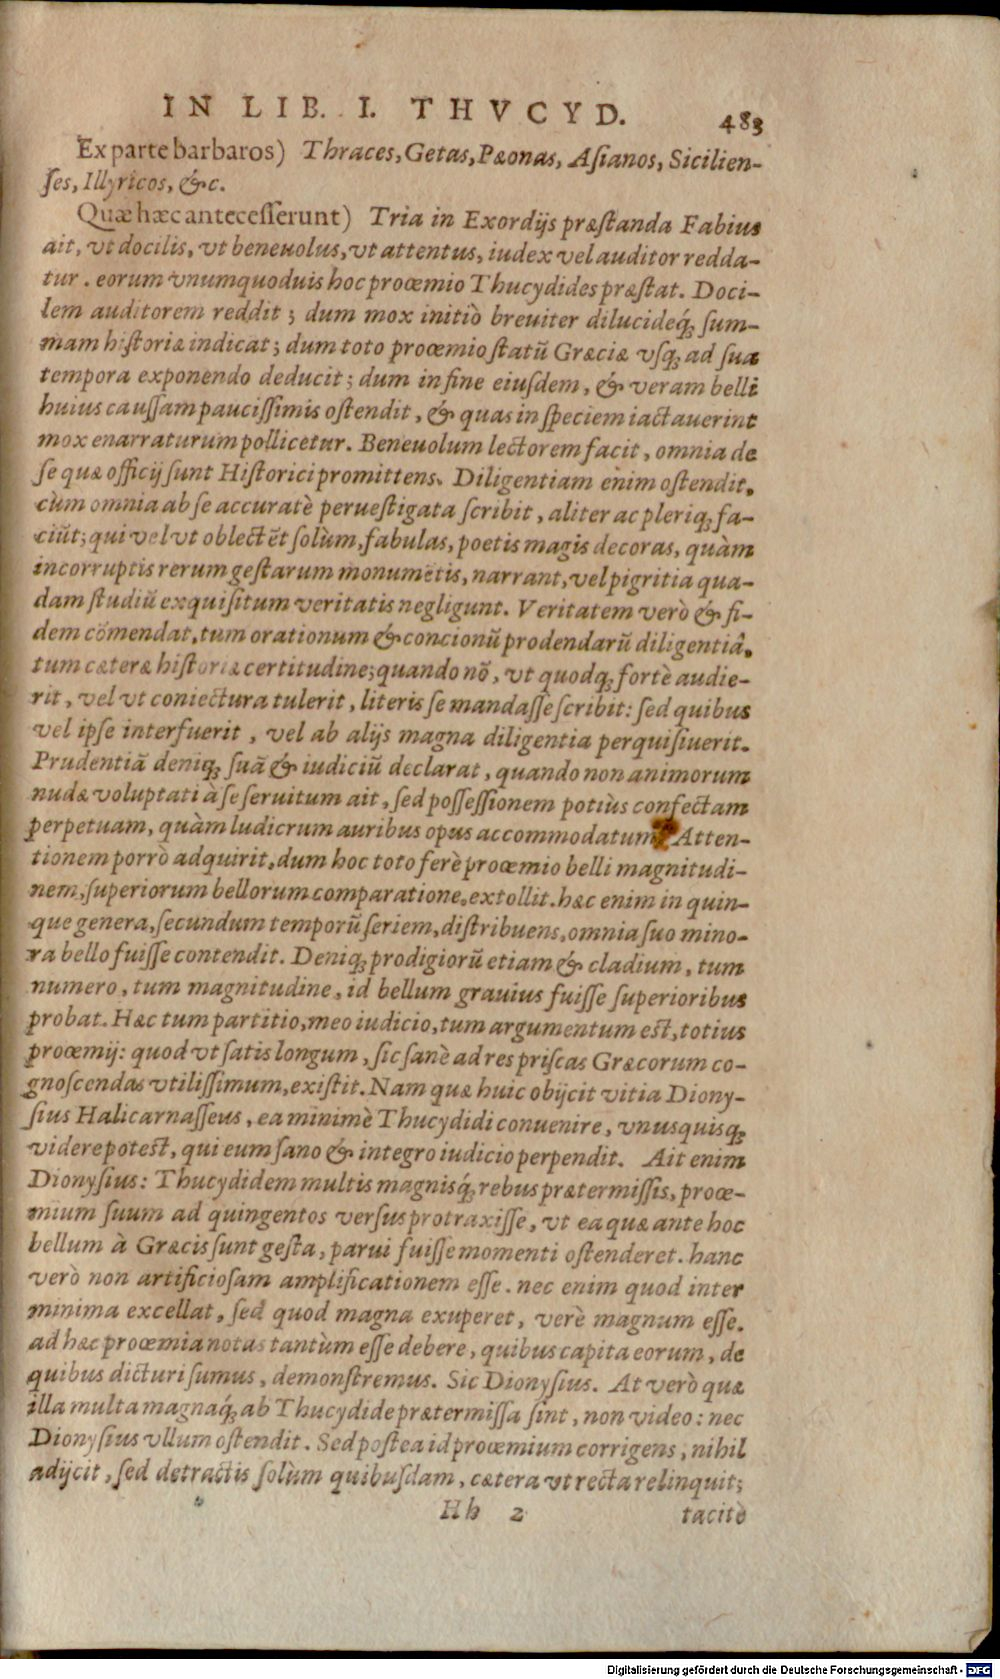 IN LIB. I. THVCYD. 483
Ex parte barbaros) Thraces, Getas, Pæonas, Asianos, Sicilien-
ses, Illyricos, &c.
Quæ hæc antecesserunt) Tria in Exordijs præstanda Fabius
ait, vt docilis, vt beneuolus, vt attentus, iudex vel auditor redda-
tur. eorum vnumquoduis hoc proœmio Thucydides præstat. Doci-
lem auditorem reddit; dum mox initiò breuiter dilucideq́; sum-
mam historiæ indicat; dum toto proœmio statũ Græciæ vsq; ad sua
tempora exponendo deducit; dum in fine eiusdem, & veram belli
huius caussam paucissimis ostendit, & quas in speciem iactauerint
mox enarraturum pollicetur. Beneuolum lectorem facit, omnia de
se quæ officij sunt Historici promittens. Diligentiam enim ostendit,
cùm omnia ab se accuratè peruestigata scribit, aliter ac pleriq; fa-
ciũt; qui vel vt oblectẽt solùm, fabulas, poetis magis decoras, quàm
incorruptis rerum gestarum monumẽtis, narrant, vel pigritia qua-
dam studiũ exquisitum veritatis negligunt. Veritatem verò & fi-
dem cõmendat, tum orationum & concionũ prodendarũ diligentiâ,
tum cæteræ historiæ certitudine; quando nõ, vt quodq; fortè audie-
rit, vel vt coniectura tulerit, literis se mandasse scribit: sed quibus
vel ipse interfuerit, vel ab alijs magna diligentia perquisiuerit.
Prudentiã deniq; suã & iudiciũ declarat, quando non animorum
nudæ voluptati à se seruitum ait, sed possessionem potiùs confectam
perpetuam, quàm ludicrum auribus opus accommodatum. Atten-
tionem porrò adquirit, dum hoc toto ferè proœmio belli magnitudi-
nem, superiorum bellorum comparatione, extollit. hæc enim in quin-
que genera, secundum temporũ seriem, distribuens, omnia suo mino-
ra bello fuisse contendit. Deniq; prodigiorũ etiam & cladium, tum
numero, tum magnitudine, id bellum grauius fuisse superioribus
probat. Hæc tum partitio, meo iudicio, tum argumentum est, totius
proœmij: quod vt satis longum, sic sanè ad res priscas Græcorum co-
gnoscendas vtilissimum, existit. Nam quæ huic obijcit vitia Diony-
sius Halicarnasseus, ea minimè Thucydidi conuenire, vnusquisq;
videre potest, qui eum sano & integro iudicio perpendit. Ait enim
Dionysius: Thucydidem multis magnisq́; rebus prætermissis, proœ-
mium suum ad quingentos versus protraxisse, vt ea quæ ante hoc
bellum à Græcis sunt gesta, parui fuisse momenti ostenderet. hanc
verò non artificiosam amplificationem esse. nec enim quod inter
minima excellat, sed quod magna exuperet, verè magnum esse.
ad hæc proœmia notas tantùm esse debere, quibus capita eorum, de
quibus dicturi sumus, demonstremus. Sic Dionysius. At verò quæ
illa multa magnaq́; ab Thucydide prætermissa sint, non video: nec
Dionysius vllum ostendit. Sed postea id proœmium corrigens, nihil
adijcit, sed detractis solùm quibusdam, cætera vt recta relinquit;
Hh 2 tacitè
Digitalisierung gefördert durch die Deutsche Forschungsgemeinschaft - DFG